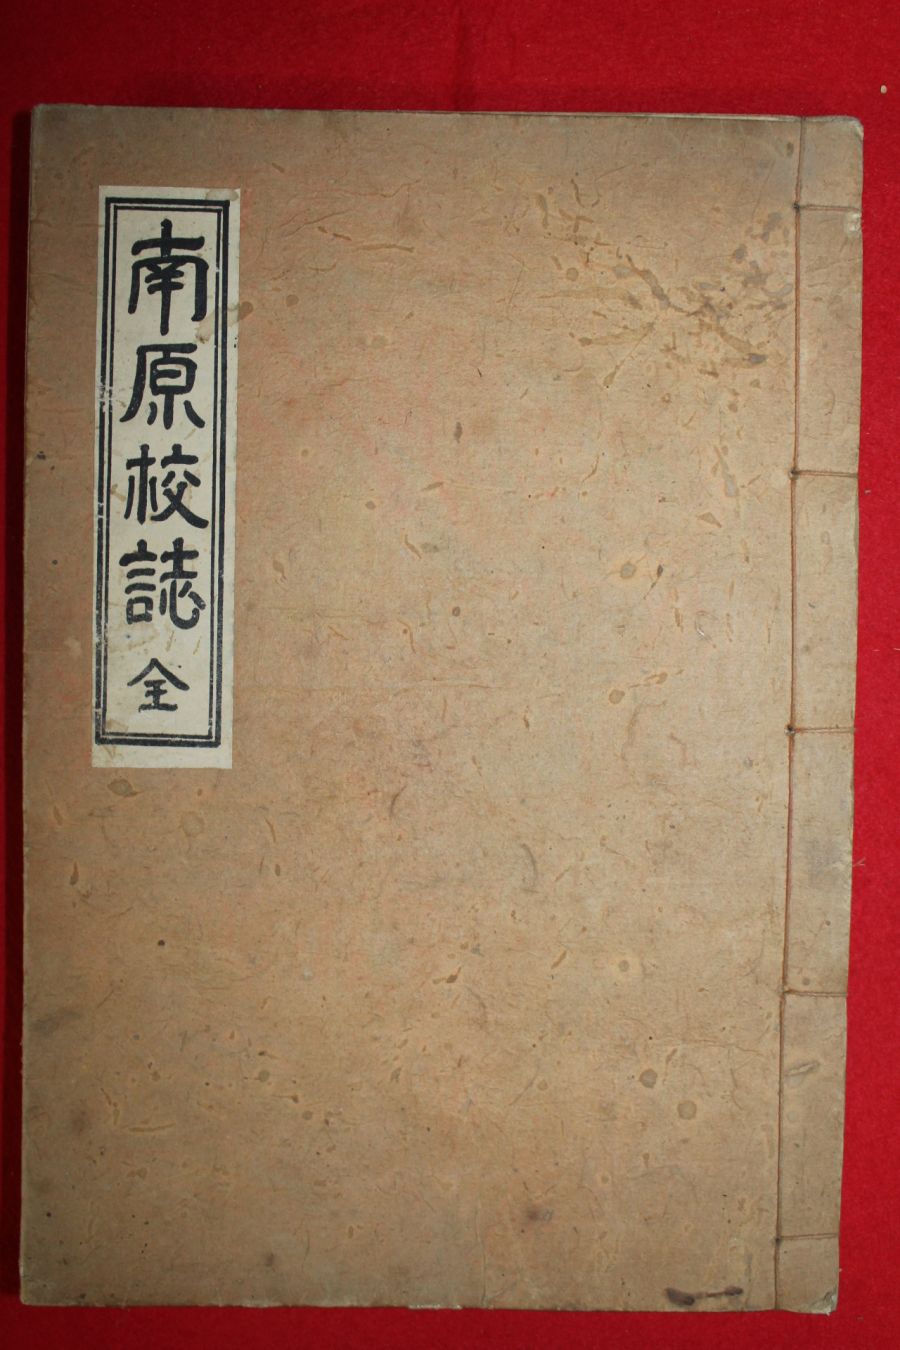 南原校誌 全